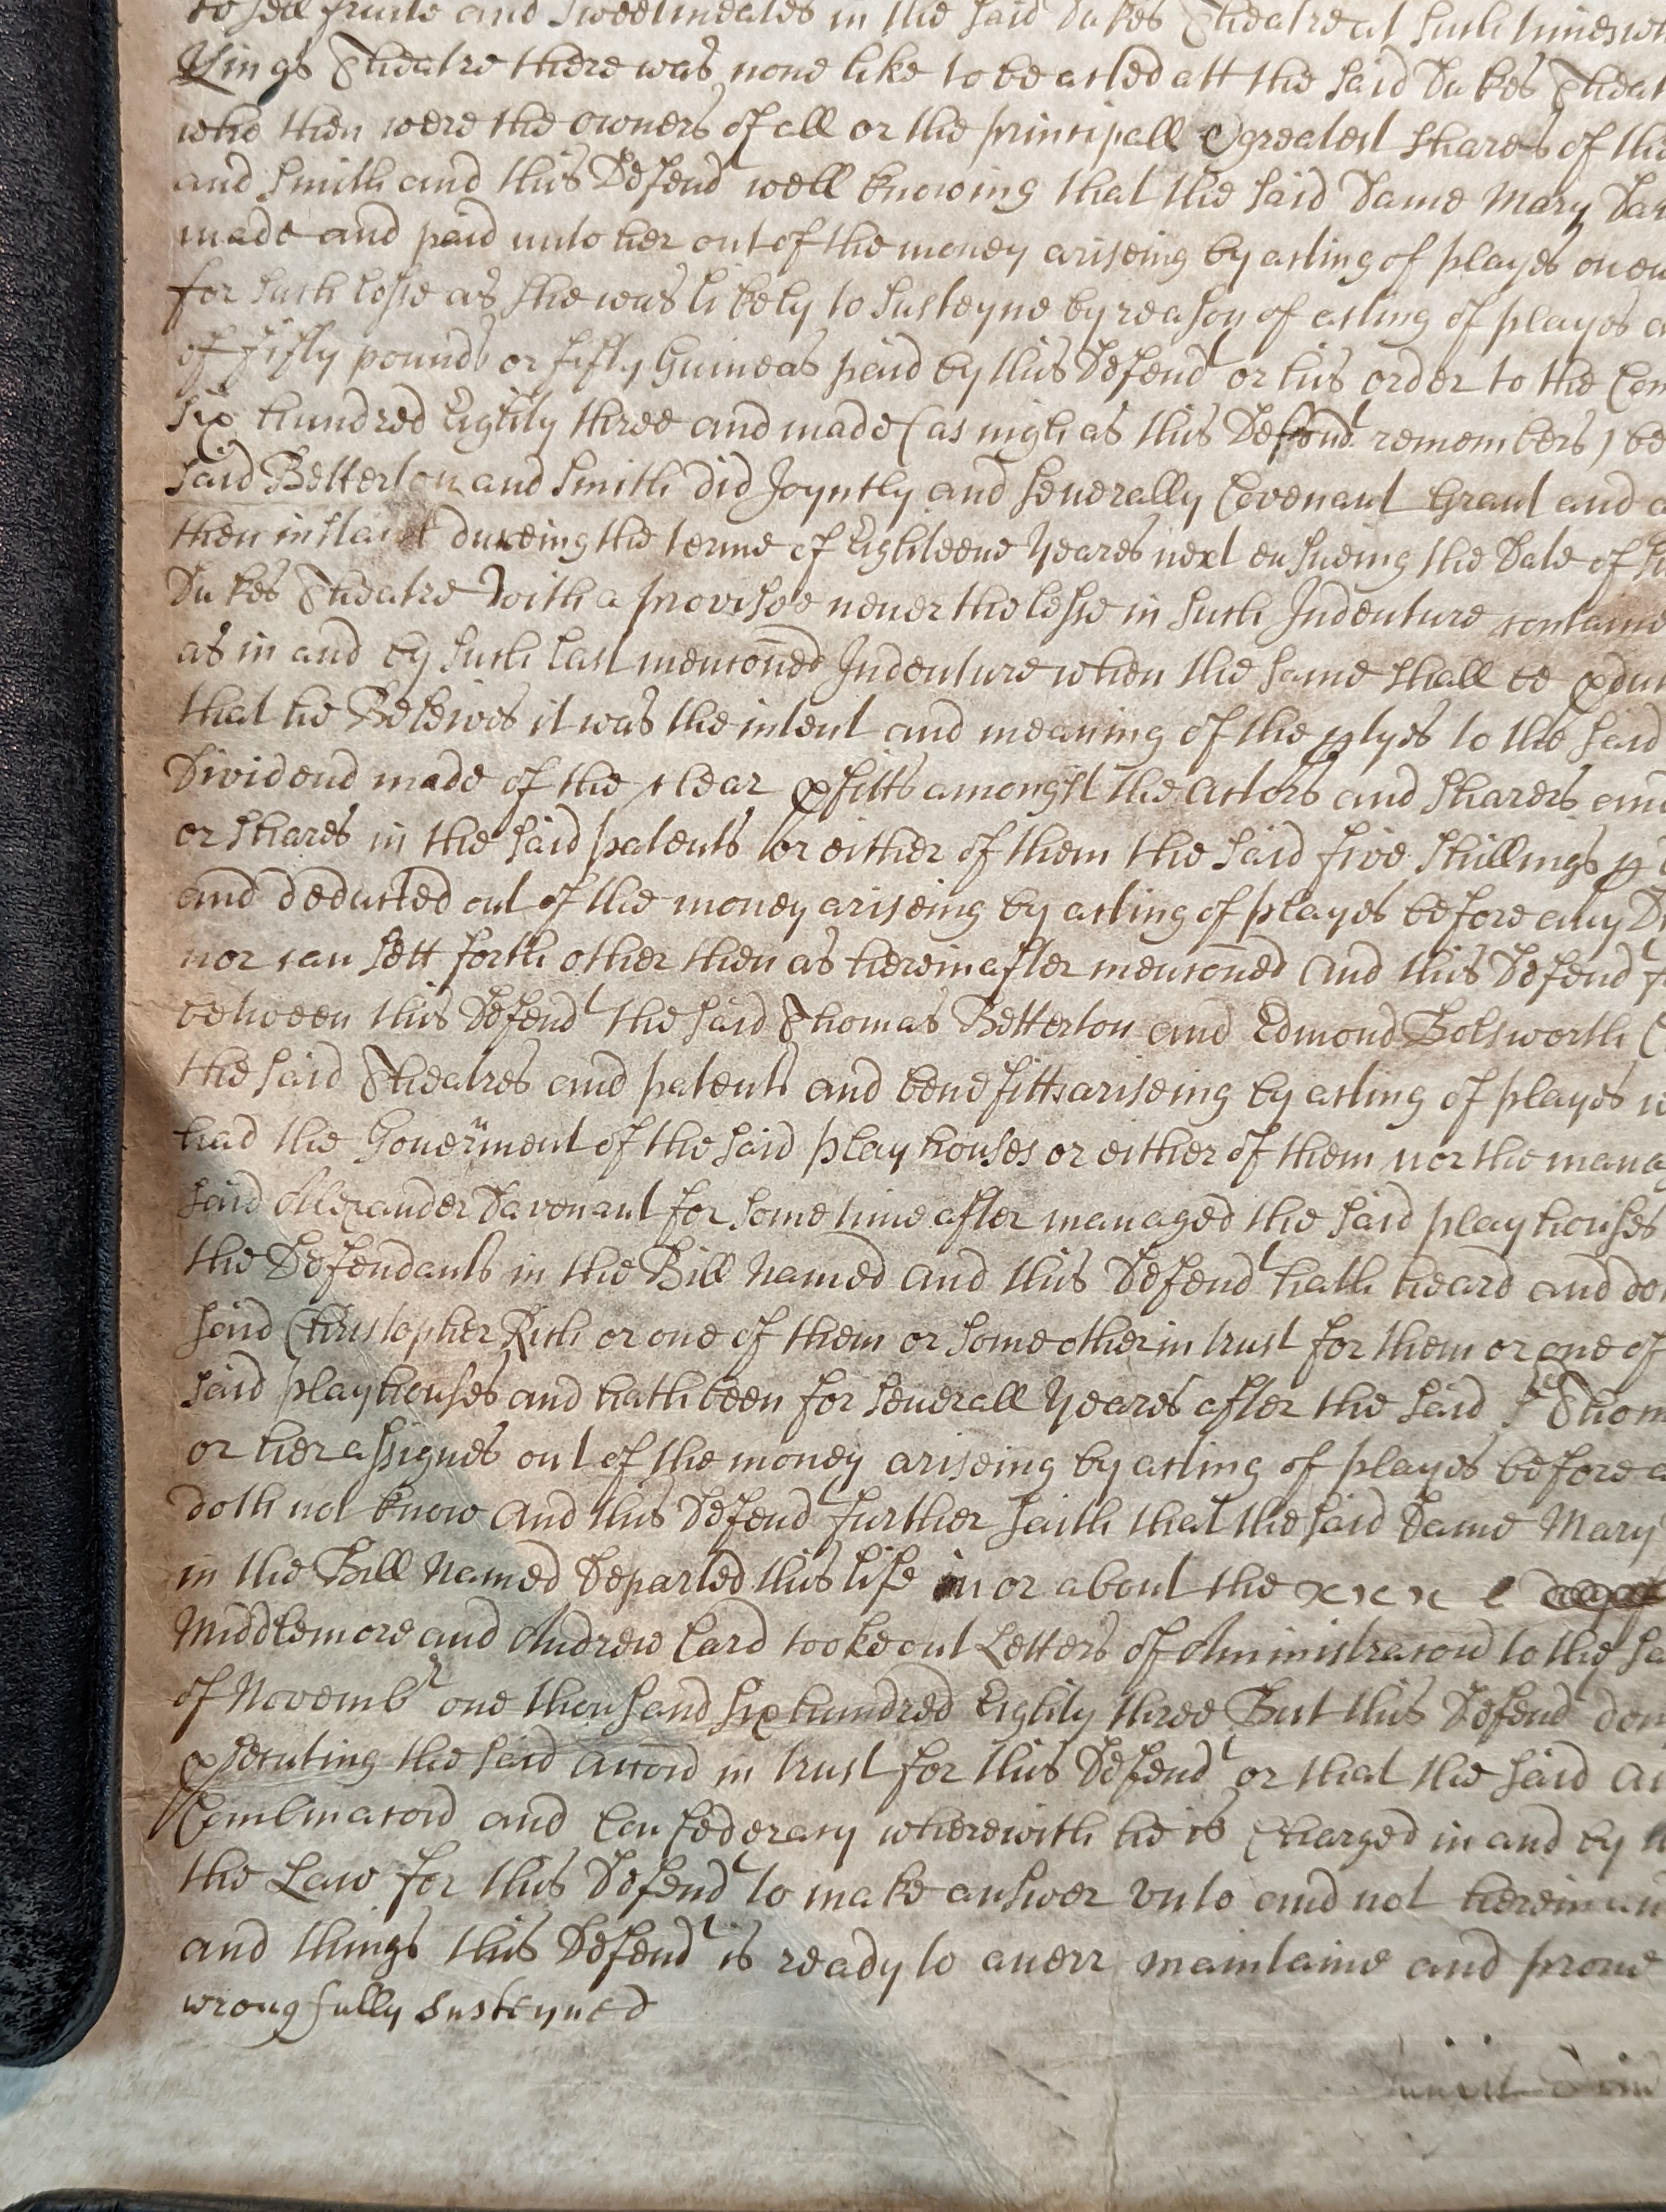 to sell fruite and Sweetmeates in the said Dukes Theatre at such times wh
Kings Theatre there was none like to be acted att the said Dukes Theat
who then were the owners of all or the principall & greatest shares of the
and Smith and this Defendt well knowing that the said Dame Mary Dav
made and paid unto her out of the money ariseing by acting of playes on eu
for such losse as she was likely to susteyne by reason of acting of playes a
of fifty pounds or fifty Guineas paid by this Defendt or his order to the Com
six hundred Eighty three and made (as nigh as this Defendt remembers) be
said Betterton and Smith did Joyntly and severally Covenant Grant and a
then instant dureing the terme of Eighteene Yeares next ensueing the Date of
Dukes Theatre With a provisoe neverthelesse in such Indenture containe
as in and by such last menconed Indenture when the same shall be pdu
that he Beleives it was the intent and meaning of the ptyes to the said
Dividend made of the clear pfitts amongst the Actors and sharers and
or shares in the said patents or either of them the said five shillings p
and deducted out of the money ariseing by acting of playes before any D
nor can sett forth other then as hereinafter menconed And this Defendt f
between this Defendt the said Thomas Betterton and Edmond Botsworth
the said Theatres and patents and benefitts ariseing by acting of playes w
had the Goverment of the said play houses or either of them nor the mana
said Alexander Davenant for some time after managed the said play houses
the Defendants in the Bill Named And this Defendt hath heard and do
said Christopher Rich or one of them or some other in trust for them or one of
said play houses and hath been for severall Yeares after the said Sr Thom
or her assignes out of the money ariseing by acting of playes before a
doth not know And this Defendt further saith that the said Dame Mary
in the Bill Named Departed this life in or about the
Middlemore and Andrew Card tooke out Letters of Administracon to the sa
of Novembr one thousand six hundred Eighty three But this Defendt den
psecuting the said Accon in trust for this Defendt or that the said Ac
Combinacon and Confederacy wherewith he is Charged in and by
the Law for this Defendt to make answer vnto and not herein
and things this Defendt is ready to averr maintaine and prove
wrongfully susteyned